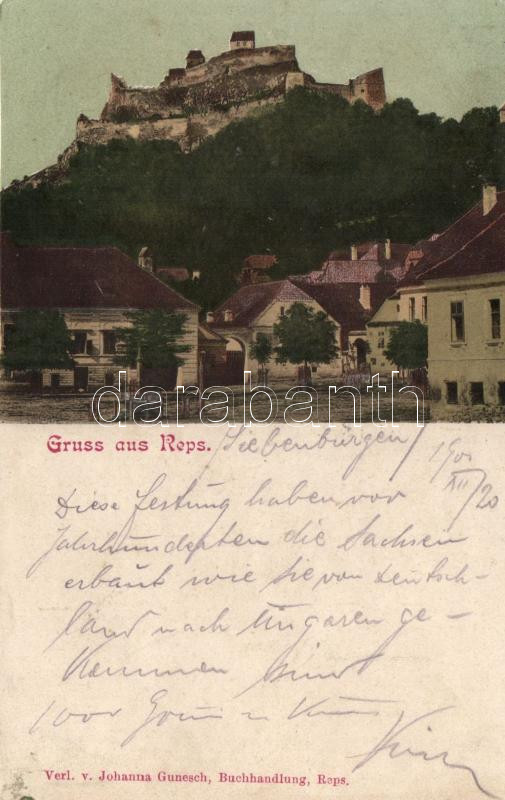 darabanth
Gruss aus Reps. Siebenbürgen
XII/20
Diese Festung haben vor
Jahrhunderten die Sachsen
erbaut wie sie von Deutsch-
land nach Ungaren ge-
kommen sind
1000
Verl. v. Johanna Gunesch, Buchhandlung, Reps.